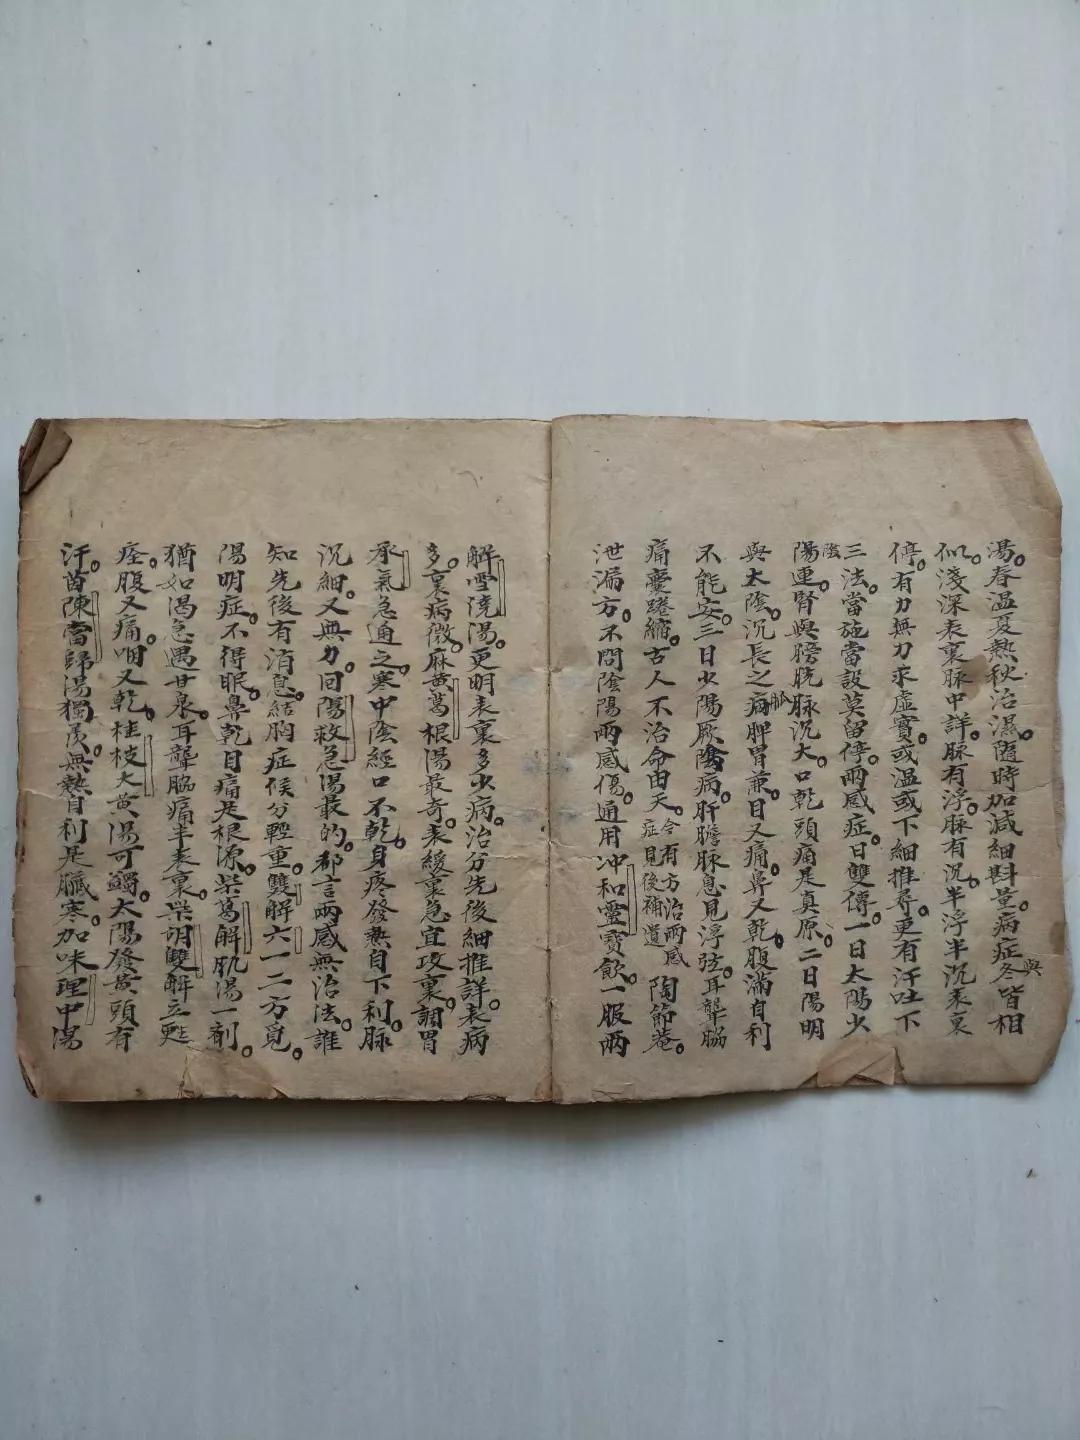 湯。春温夏熱秋治濕。隨時加減細斟量。病症與冬皆相
似。淺深表裏脉中詳。脉有浮。脉有沉。半浮半沉表裏
停。有力無力求虛實。或温或下細推尋。更有汗吐下
三法。當施當設莫留停。兩感症。日雙傳。一日太陽少
陽連。腎與膀胱脉沉大。口乾頭痛是真原。二日陽明
陰
與太陰。沉長之病脾胃兼。目又痛。鼻又乾。腹滿自利
不能安。三日少陽厥陰病。肝膽脉息見浮弦。耳聾脇
痛囊踡縮。古人不治命由天。今有方治兩感症見後補遺 陶節菴。
泄漏方。不問陰陽兩感傷。通用冲和靈寶飲。一服兩
解雪澆湯。更明表裏多少病。治分先後細推詳。表病
多。裏病微。麻黄葛根湯最奇。表緩裏急宜攻裏。調胃
承氣急通之。寒中陰經口不乾。身疼發熱自下利。脉
沉細。又無力。回陽救急湯最的。都言兩感無治法。誰
知先後有消息。結胸症候分輕重。雙解六一二方覓。
陽明症。不得眠。鼻乾目痛是根原。柴葛解肌湯一劑。
猶如渴急遇甘泉。耳聾脇痛半表裏。柴胡雙解立甦
痊。腹又痛。咽又乾。桂枝大黄湯可蠲。太陽發黄頭有
汗。茵陳當歸湯獨羨。無熱自利是臟寒。加味理中湯